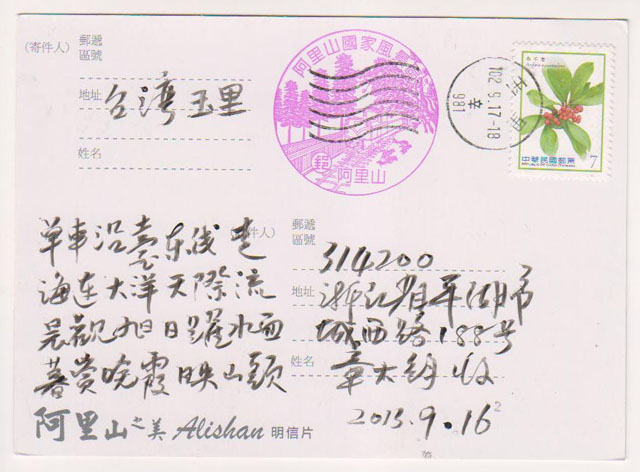 (寄件人)
郵遞
區號
地址
台灣玉里
姓名
阿里山國家風景
郵
阿里山
玉里
102.9.17-18
981
中華民國郵票
7
單車沿臺东线
海連大洋天際流
晨觀旭日躍水面
暮賞晚霞映山頭
件人)
郵遞
區號
314200
地址
浙江省平湖市
城西路188号
姓名
收
2013.9.16
阿里山之美 Alishan 明信片